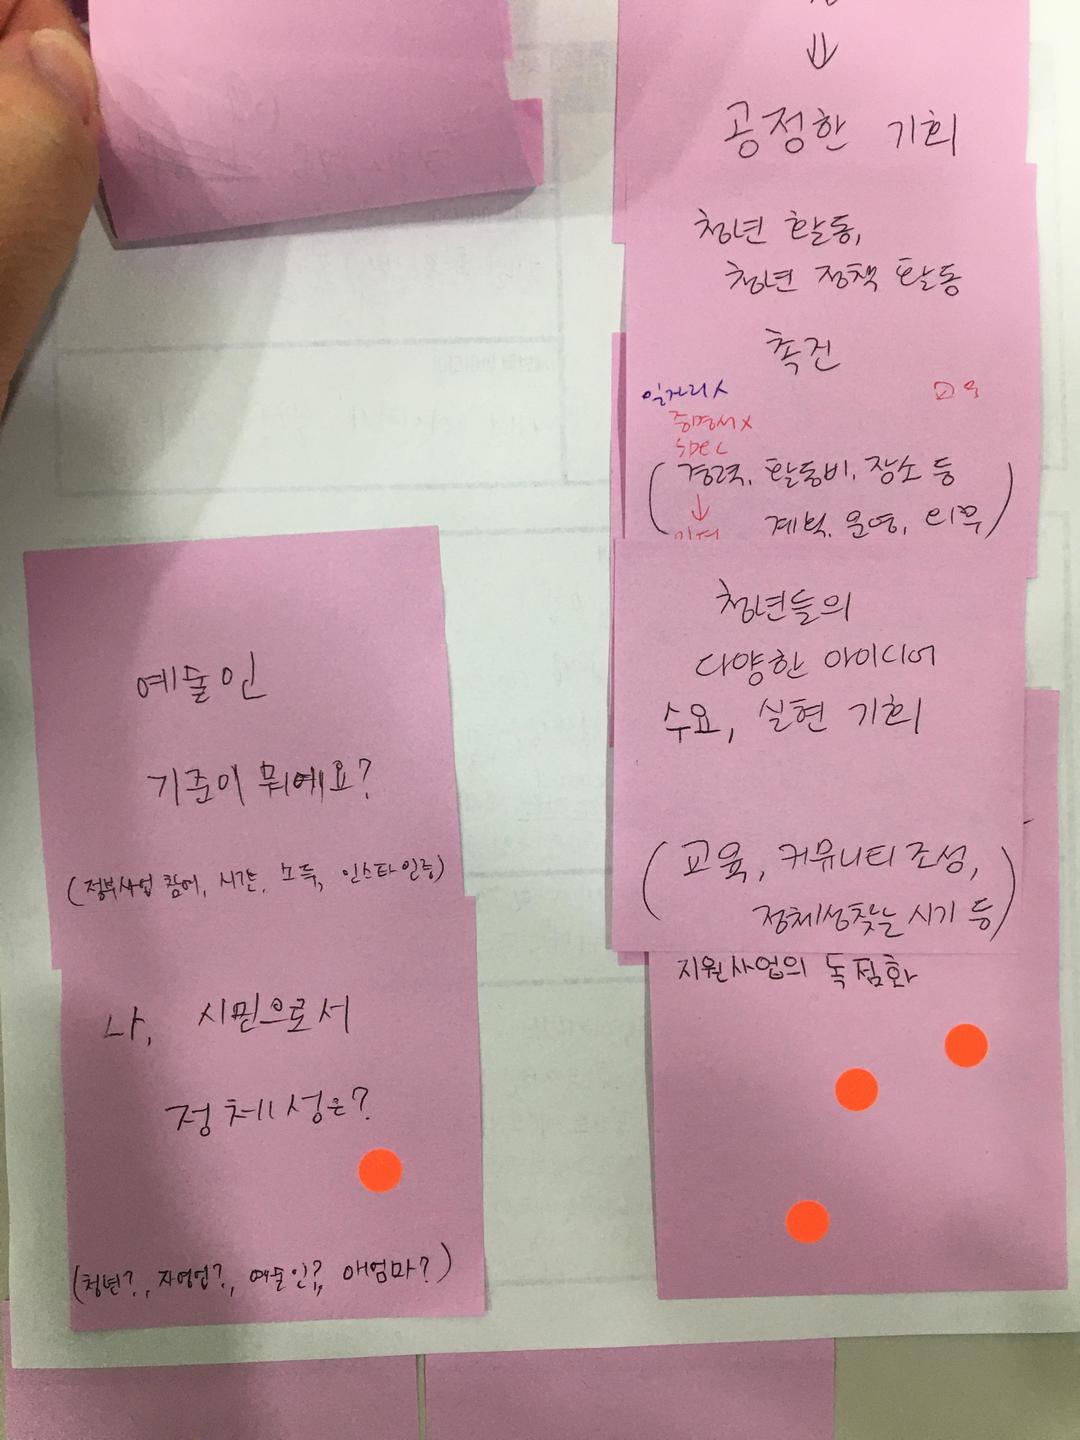 공정한 기회
청년 활동,
청년 정책 활동
촉진
일거리 X
교육
증명서 X
spec
(경력, 활동비, 장소 등
계획, 운영,
청년들의
다양한 아이디어
수요, 실현 기회
(교육, 커뮤니티 조성,
정체성찾는 시기 등)
지원사업의 독점화
예술인
기준이 뭐예요?
(정부사업 참여, 시간, 소득, 인스타 인증)
나, 시민으로서
정체성은?
(청년?, 자영업?, 예술인?, 애엄마?)